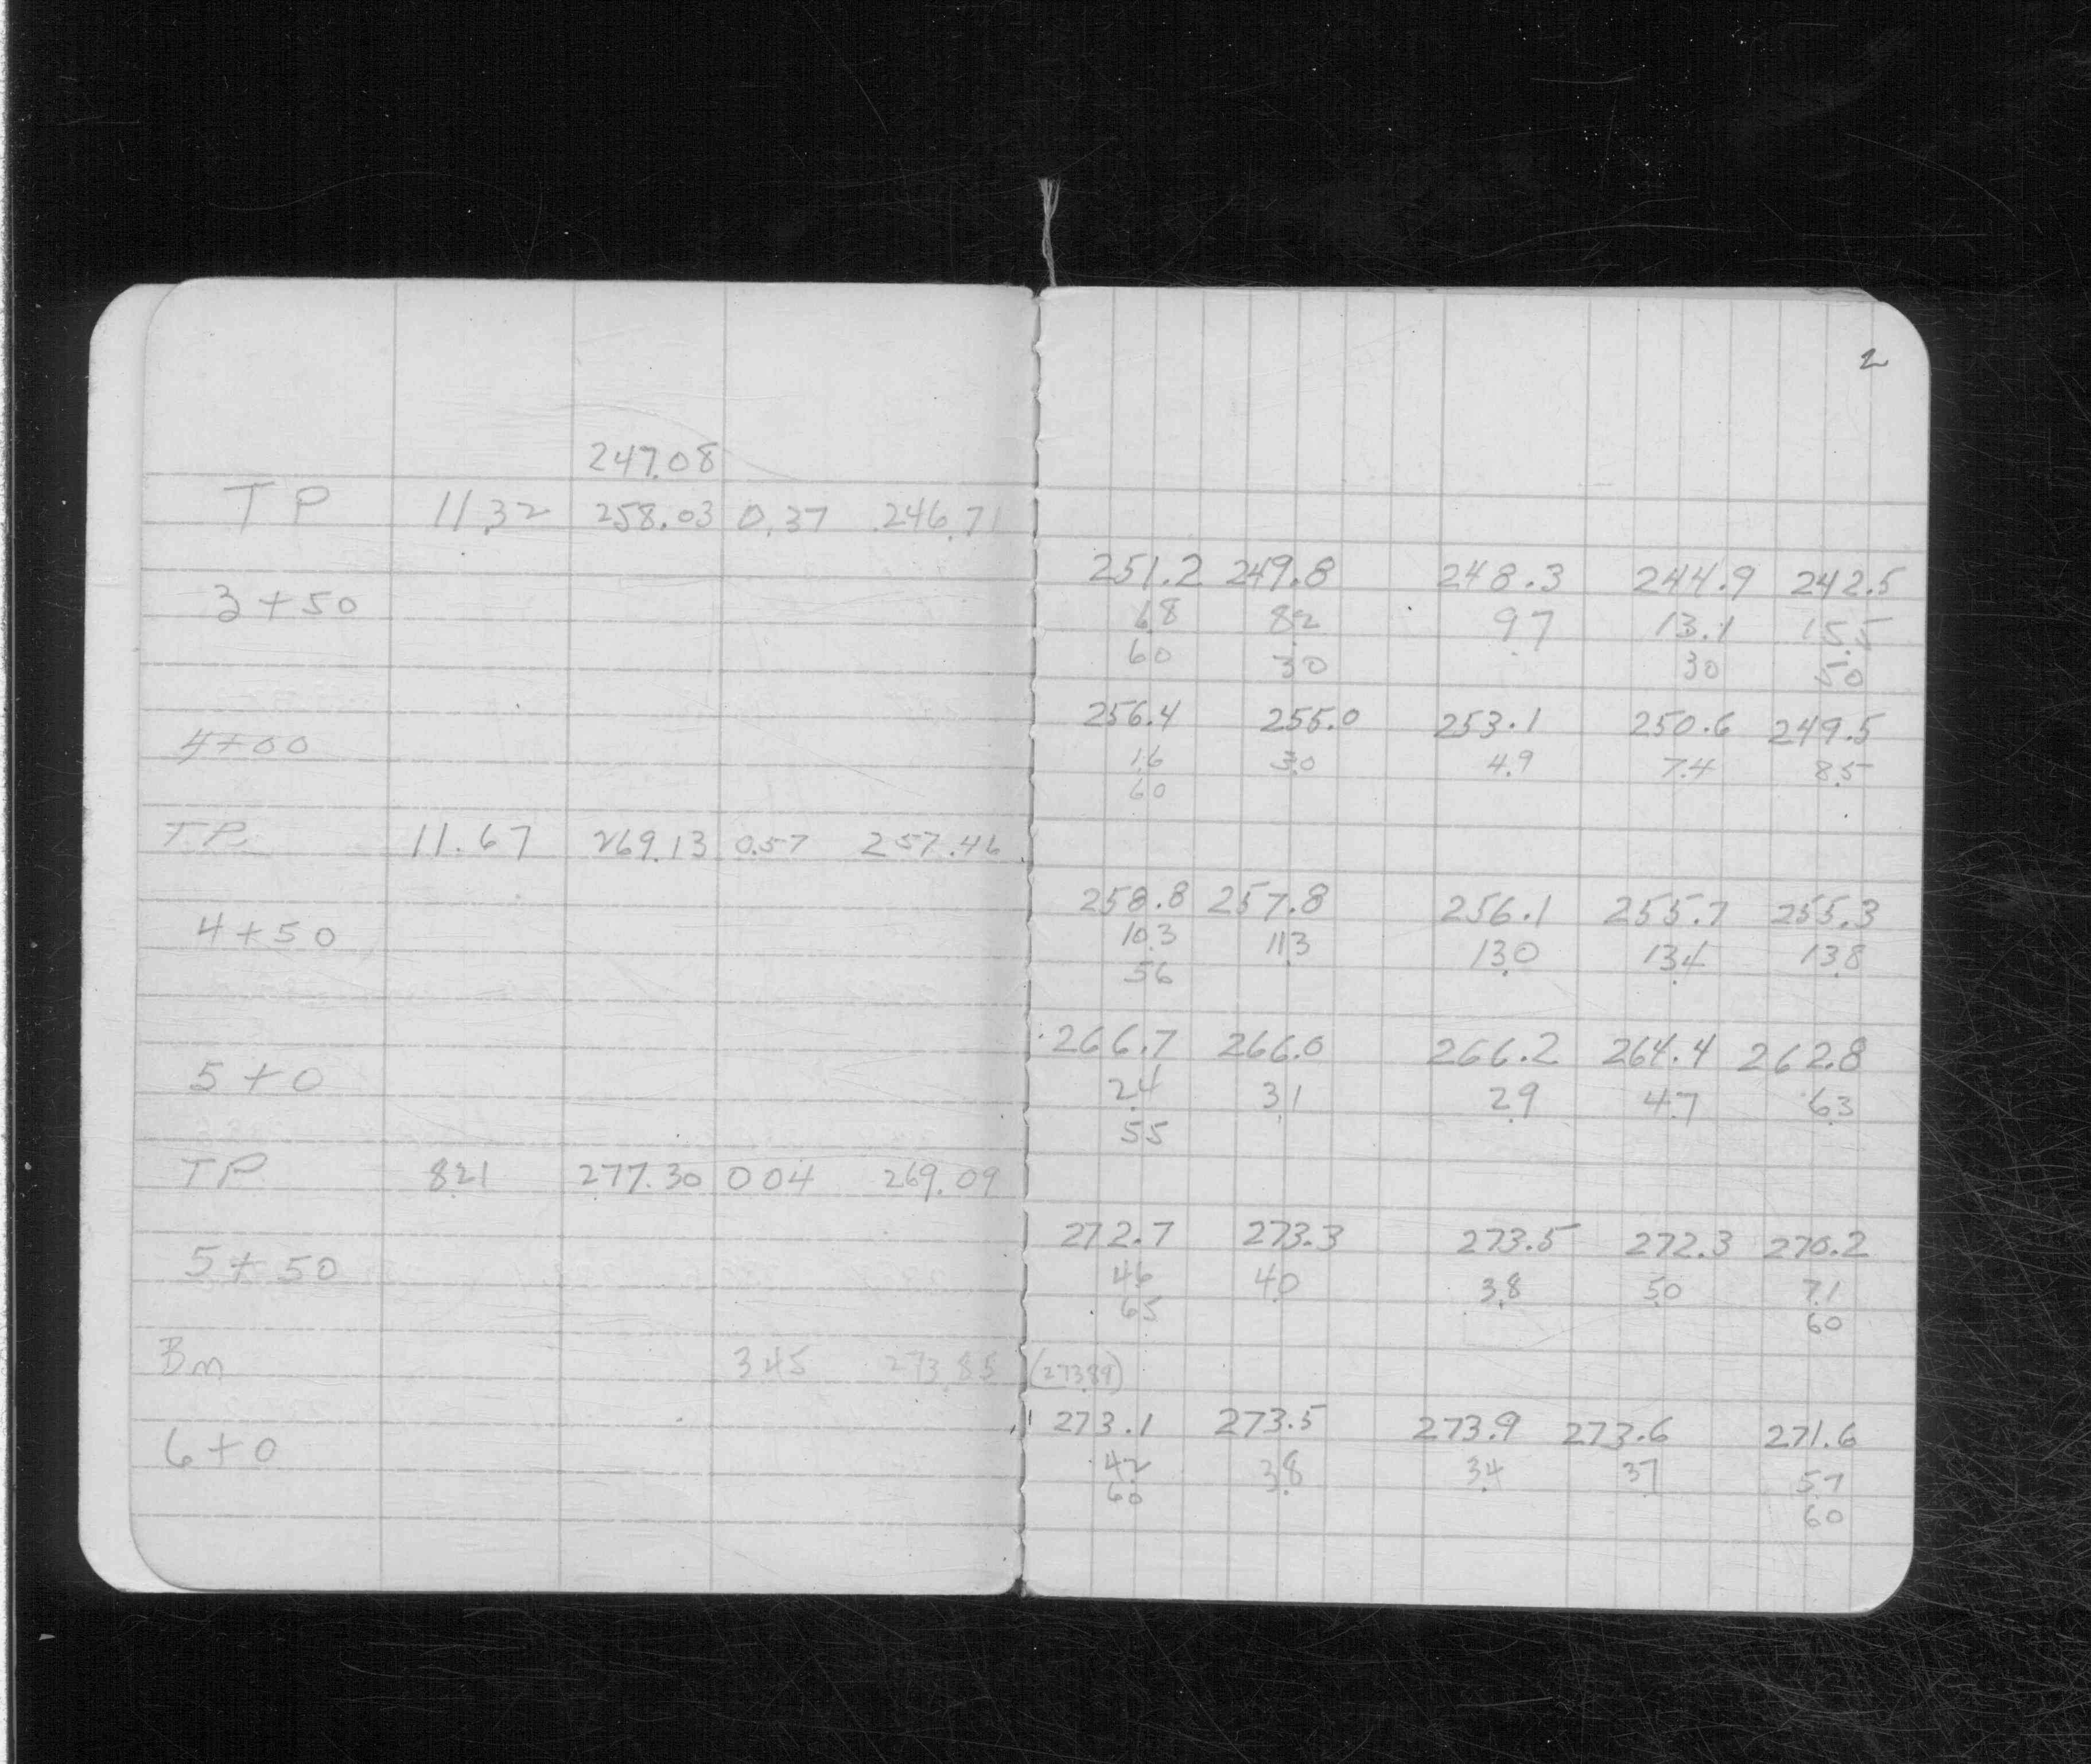 2
247.08
TP 11.32 258.03 0.37 246.71
251.2 249.8 248.3 244.9 242.5
3+50 6.8 8.2 9.7 13.1 15.5
60 30 30 50
256.4 255.0 253.1 250.6 249.5
4+00 1.6 3.0 4.9 7.4 8.5
60
TP 11.67 269.13 0.57 257.46
258.8 257.8 256.1 255.7 255.3
4+50 10.3 11.3 13.0 13.4 13.8
56
266.7 266.0 266.2 264.4 262.8
5+0 2.4 3.1 2.9 4.7 6.3
55
TP 8.21 277.30 0.04 269.09
272.7 273.3 273.5 272.3 270.2
5+50 4.6 4.0 3.8 5.0 7.1
65 60
Bm 3.45 273.85 (273.89)
273.1 273.5 273.9 273.6 271.6
6+0 4.2 3.8 3.4 3.7 5.7
60 60